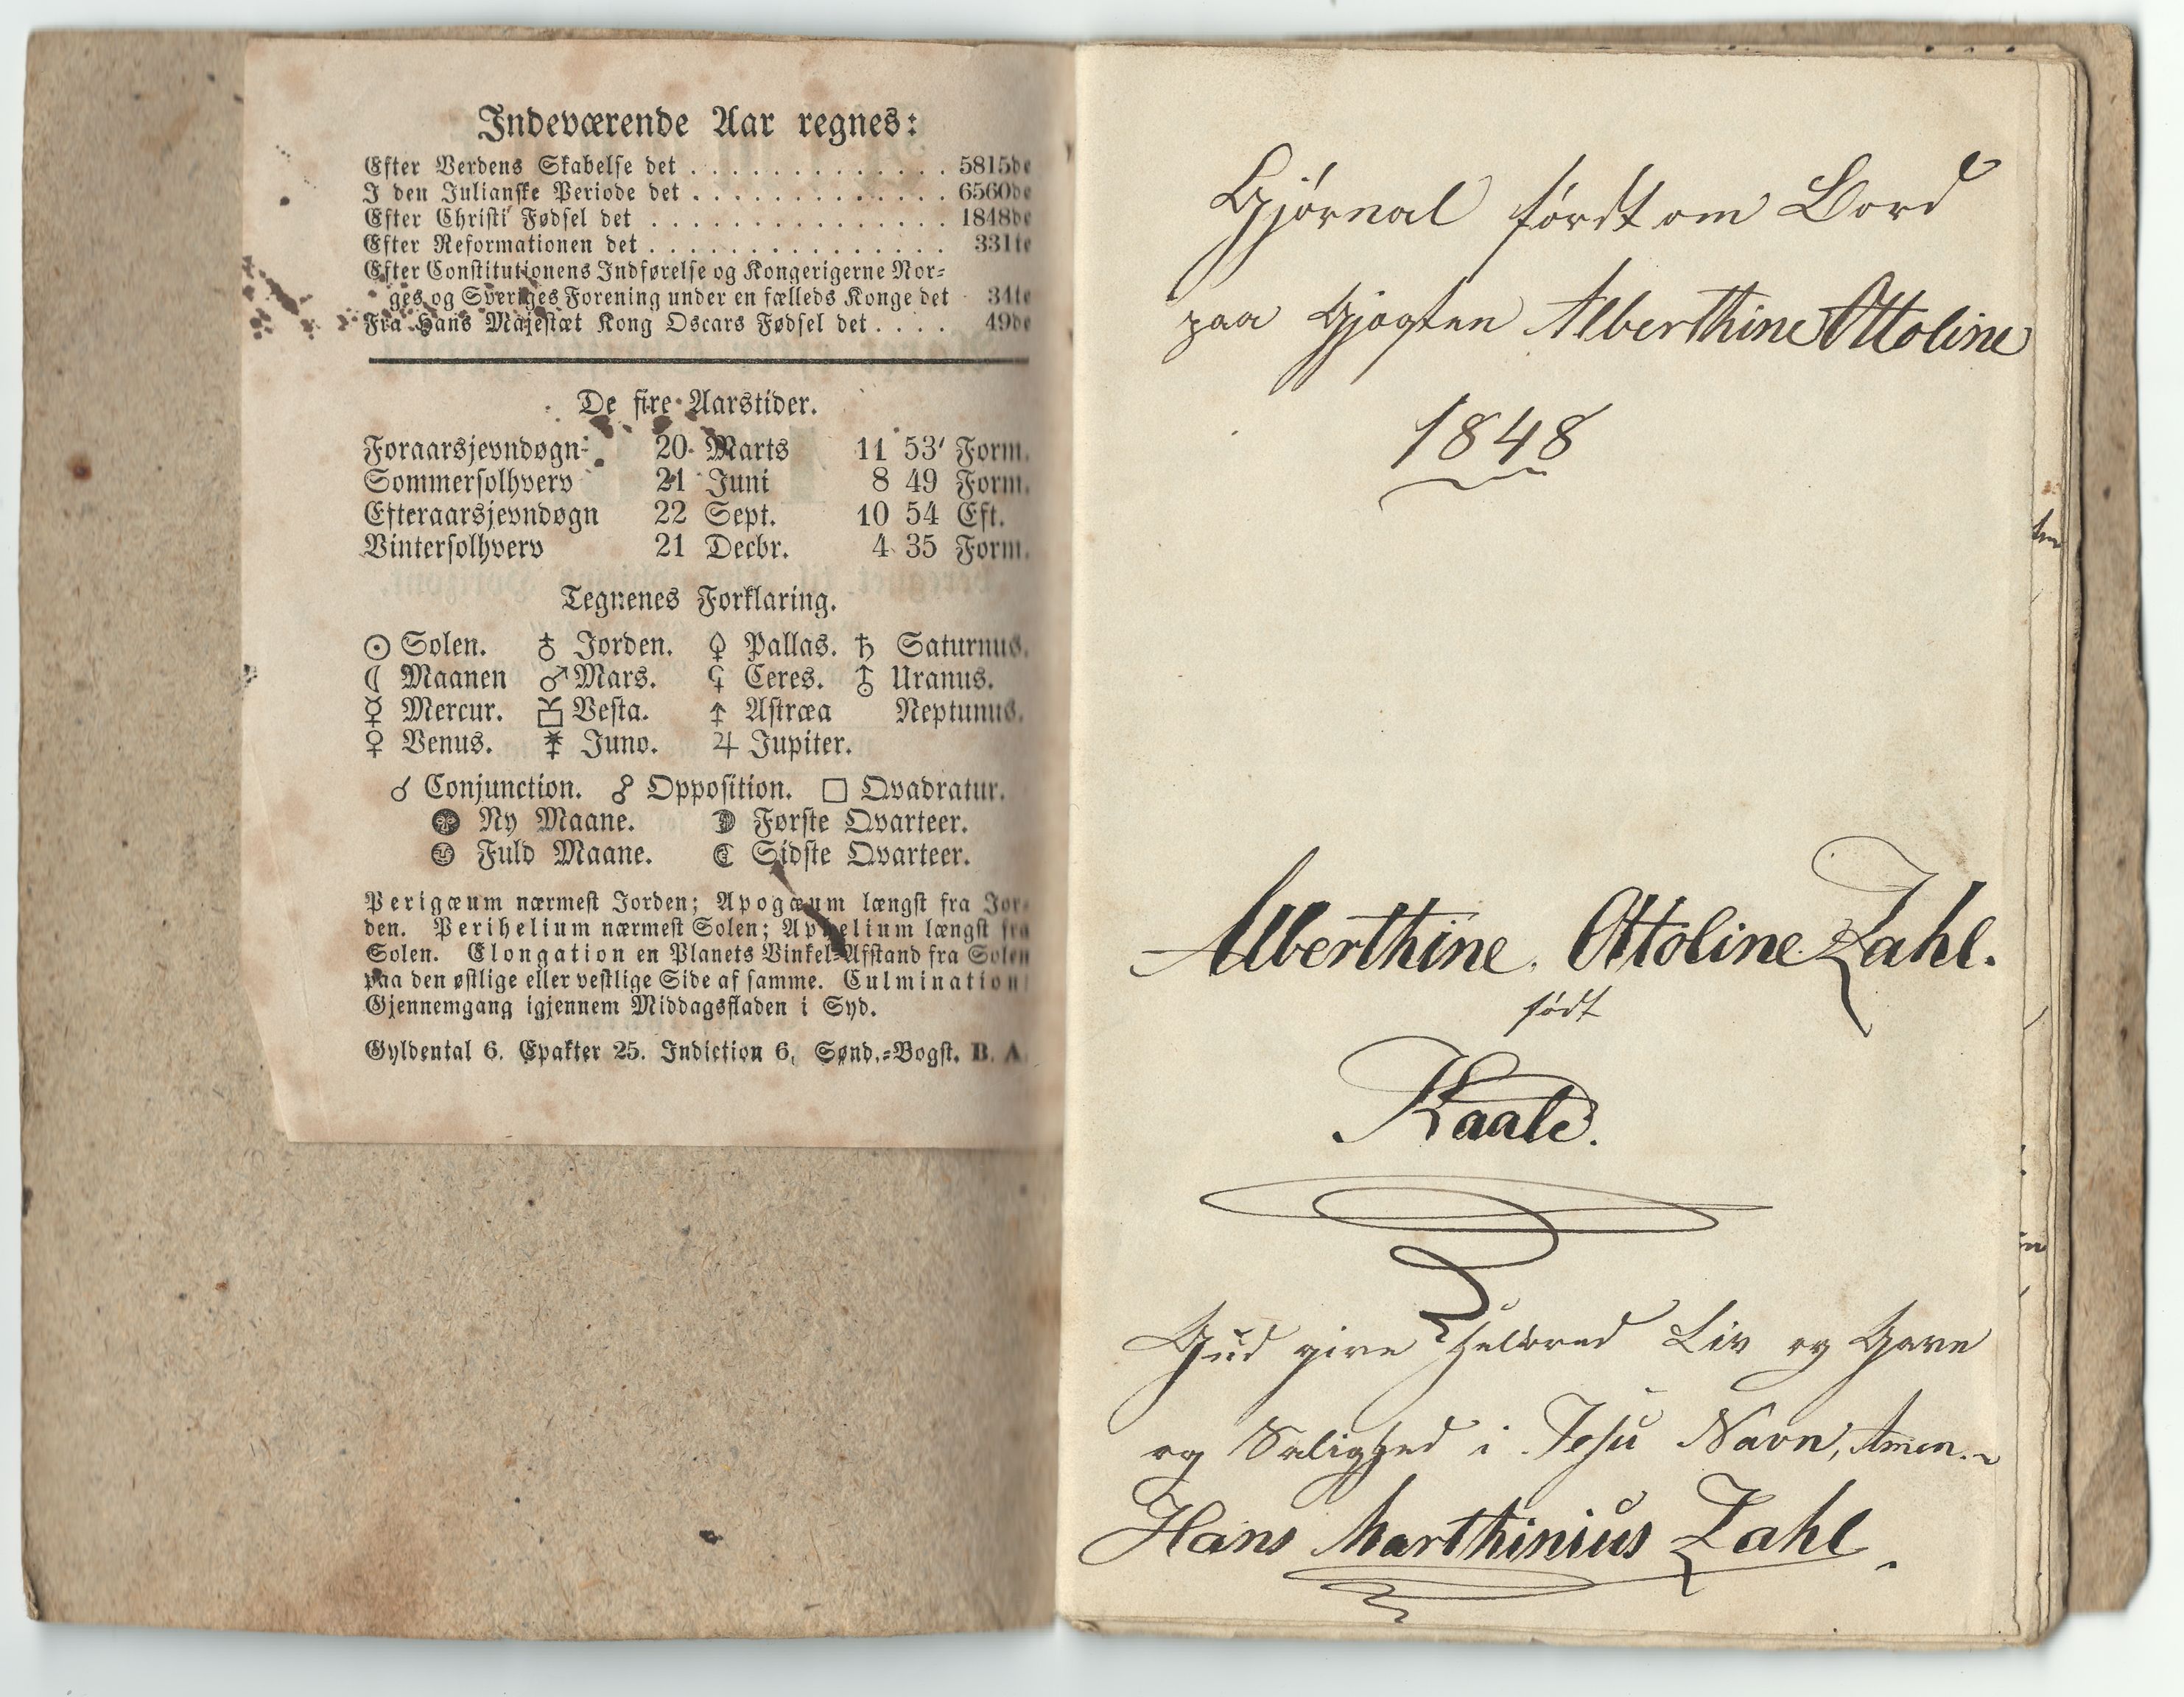 Indeværende Aar regnes:
Efter Verdens Skabelse det . . . . . . . . . . . . . 5815de
I den Julianske Periode det . . . . . . . . . . . . . 6560de
Efter Christi Fødsel det . . . . . . . . . . . . . . . 1848de
Efter Reformationen det . . . . . . . . . . . . . . . 331te
Efter Constitutionens Indførelse og Kongerigerne Nor-
ges og Sveriges Forening under en fælleds Konge det 34te
Fra Hans Majestæt Kong Oscars Fødsel det . . . . 49de
De fire Aarstider.
Foraarsjevndøgn 20 Marts 11 53' Form.
Sommersolhverv 21 Juni 8 49 Form.
Efteraarsjevndøgn 22 Sept. 10 54 Eft.
Vintersolhverv 21 Decbr. 4 35 Form.
Tegnenes Forklaring.
☉ Solen. ♁ Jorden. ⚴ Pallas. ♄ Saturnus.
☾ Maanen ♂ Mars. ⚳ Ceres. ⛢ Uranus.
☿ Mercur. ⚶ Vesta. Astræa Neptunus.
♀ Venus. ⚵ Juno. ♃ Jupiter.
☌ Conjunction. ☍ Opposition. □ Qvadratur.
Ny Maane. Første Qvarteer.
Fuld Maane. Sidste Qvarteer.
Perigæum nærmest Jorden; Apogæum længst fra Jor-
den. Perihelium nærmest Solen; Aphelium længst fra
Solen. Elongation en Planets Vinkel-Afstand fra Solen
paa den østlige eller vestlige Side af samme. Culmination
Gjennemgang igjennem Middagsfladen i Syd.
Gyldental 6. Epakter 25. Indiction 6, Sønd.-Bogst. B. A.
Gjørnal ført om Bord
paa Gjagten Alberthine Ottoline
1848
Alberthine. Ottoline Zahl.
født
Kaale.
Gud give Helbred Liv og Gave
og Salighed i Jesu Navn, Amen.
Hans Marthinius Zahl.